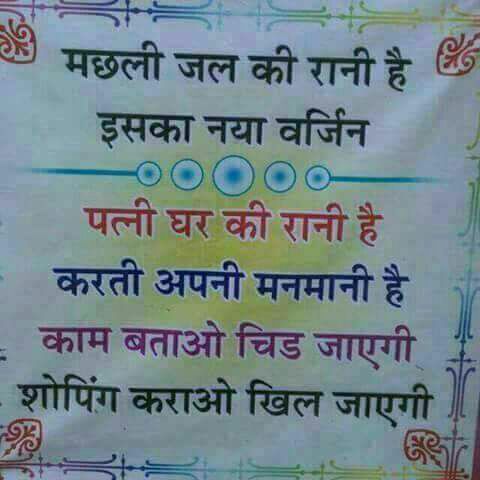 मछली जल की रानी है
इसका नया वर्जिन
पत्नी घर की रानी है
करती अपनी मनमानी है
काम बताओ चिड जाएगी
शोपिंग कराओ खिल जाएगी